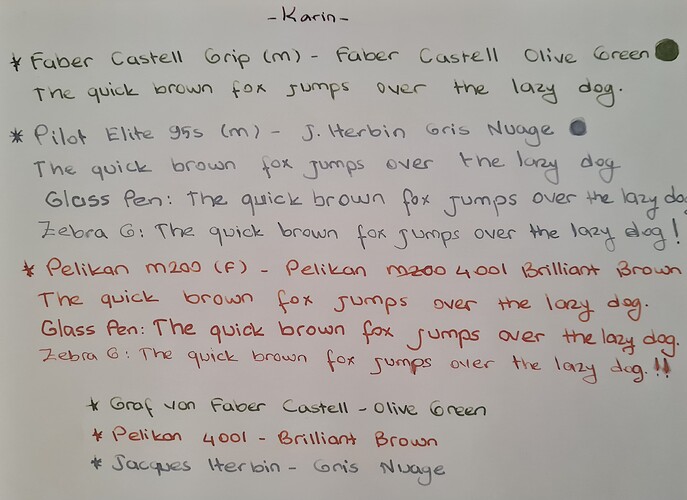 - Karin -
* Faber Castell Grip (m) - Faber Castell Olive Green
The quick brown fox jumps over the lazy dog.
* Pilot Elite 95s (m) - J. Herbin Gris Nuage
The quick brown fox jumps over the lazy dog
Glass Pen: The quick brown fox jumps over the lazy do
Zebra G: The quick brown fox jumps over the lazy dog!
* Pelikan m200 (F) - Pelikan m200 4001 Brilliant Brown
The quick brown fox jumps over the lazy dog.
Glass Pen: The quick brown fox jumps over the lazy dog.
Zebra G: The quick brown fox jumps over the lazy dog.!!
* Graf von Faber Castell - Olive Green
* Pelikan 4001 - Brilliant Brown
* Jacques Herbin - Gris Nuage